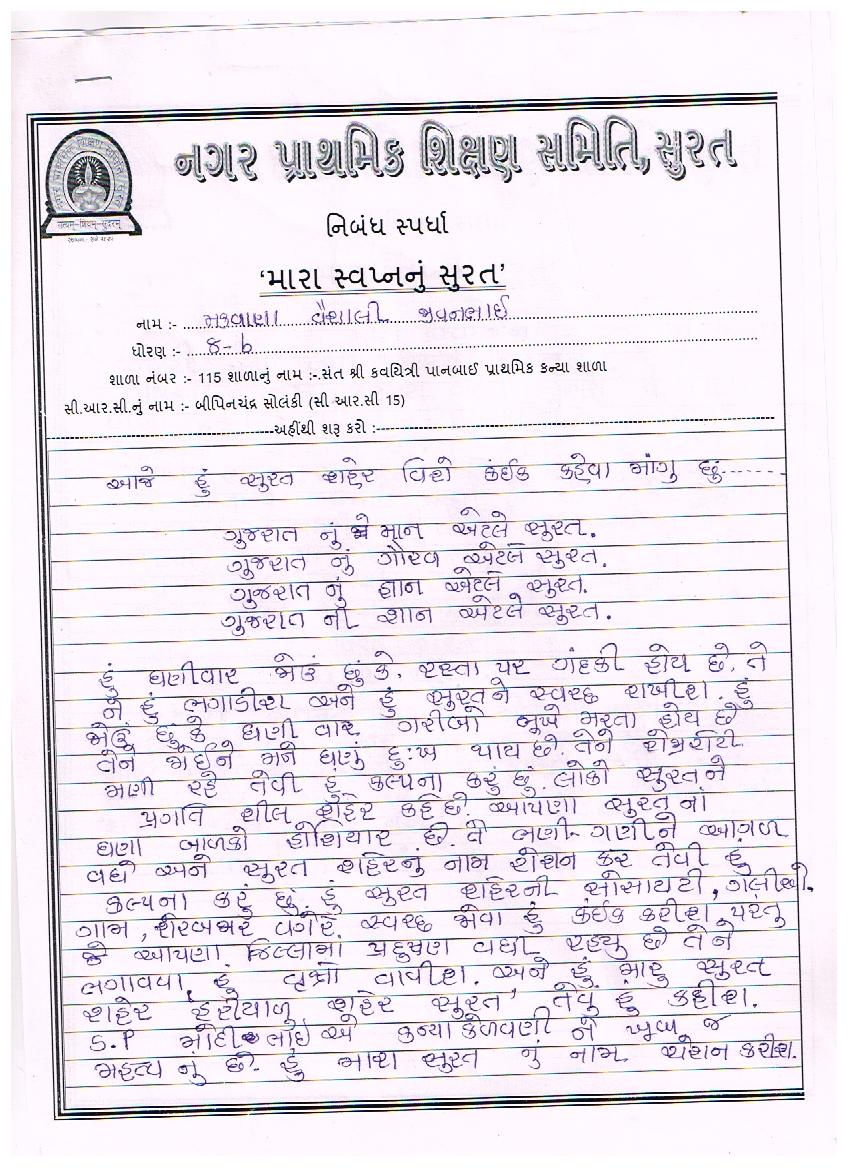 નગર પ્રાથમિક શિક્ષણ સમિતિ, સુરત
સત્યમ-શિવમ-સુંદરમ્
નિબંધ સ્પર્ધા
‘મારા સ્વપ્નનું સુરત’
નામ :- મકવાણા વૈશાલી જીવનભાઈ
ધોરણ :- ૪-b
શાળા નંબર :- 115 શાળાનું નામ :-.સંત શ્રી કવયિત્રી પાનબાઈ પ્રાથમિક કન્યા શાળા
સી.આર.સી.નું નામ :- બીપિનચંદ્ર સોલંકી (સી આર.સી 15)
અહીંથી શરૂ કરો :-
આજે હું સુરત શહેર વિશે કંઈક કહેવા માંગુ છું.......
ગુજરાત નું માન એટલે સુરત.
ગુજરાત નું ગૌરવ એટલે સુરત.
ગુજરાત નું જ્ઞાન એટલે સુરત.
ગુજરાત ની શાન એટલે સુરત.
હું ઘણીવાર જોઉં છું કે, રસ્તા પર ગંદકી હોય છે. તે
ને હું ભગાડીશ અને હું સુરતને સ્વચ્છ રાખીશ. હું
જોઉં છું કે ઘણી વાર ગરીબો ભૂખે મરતા હોય છે
તેને જોઈને મને ઘણું દુઃખ થાય છે. તેને રોજીરોટી
મળી રહે તેવી હું કલ્પના કરું છું. લોકો સુરતને
પ્રગતિ શીલ શહેર કહે છે. આપણા સુરત નાં
ઘણા બાળકો હોશિયાર છે. તે ભણી-ગણીને આગળ
વધે અને સુરત શહેરનું નામ રોશન કરે તેવી હું
કલ્પના કરું છું. હું સુરત શહેરની સોસાયટી, ગલીઓ,
ગામ, વગેરે સ્વચ્છ જોવા હું કંઈક કરીશ, પરંતુ
કે આપણા જિલ્લામાં પ્રદૂષણ વધી રહ્યુ છે તેને
ભગાવવા, હું વૃક્ષો વાવીશ. અને હું મારુ સુરત
શહેર 'હરીયાળુ શહેર સુરત' તેવું હું કહીશ.
S.P મોદી ભાઇ એ કન્યા કેળવણી ને ખૂબ જ
મહત્વ નું છે. હું મારા સુરત નું નામ રોશન કરીશ.